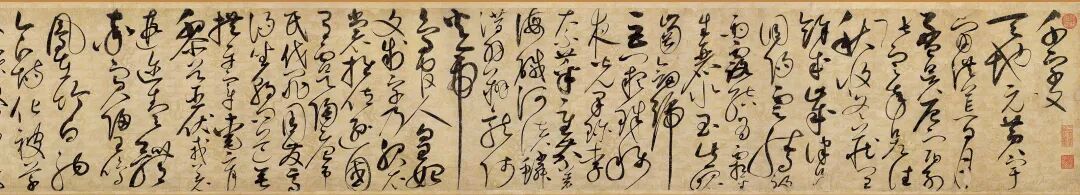 千字文
天地元黃宇
宙洪荒日月
盈昃辰宿列
張寒來暑往
秋收冬藏閏
餘成歲律呂
調陽雲騰致
雨露結為霜金
生麗水玉出崐
崗劍號
巨闕珠稱
夜光果珍李
柰菜重芥薑
海鹹河淡鱗
潛羽翔龍師
火帝
鳥官人皇始
制文字乃服衣
裳推位讓國
有虞陶唐弔
民伐罪周發商
湯坐朝問道垂
拱平章愛育
黎首臣伏戎羌
遐邇壹體
率賓歸王鳴
鳳在竹白駒
食場化被草